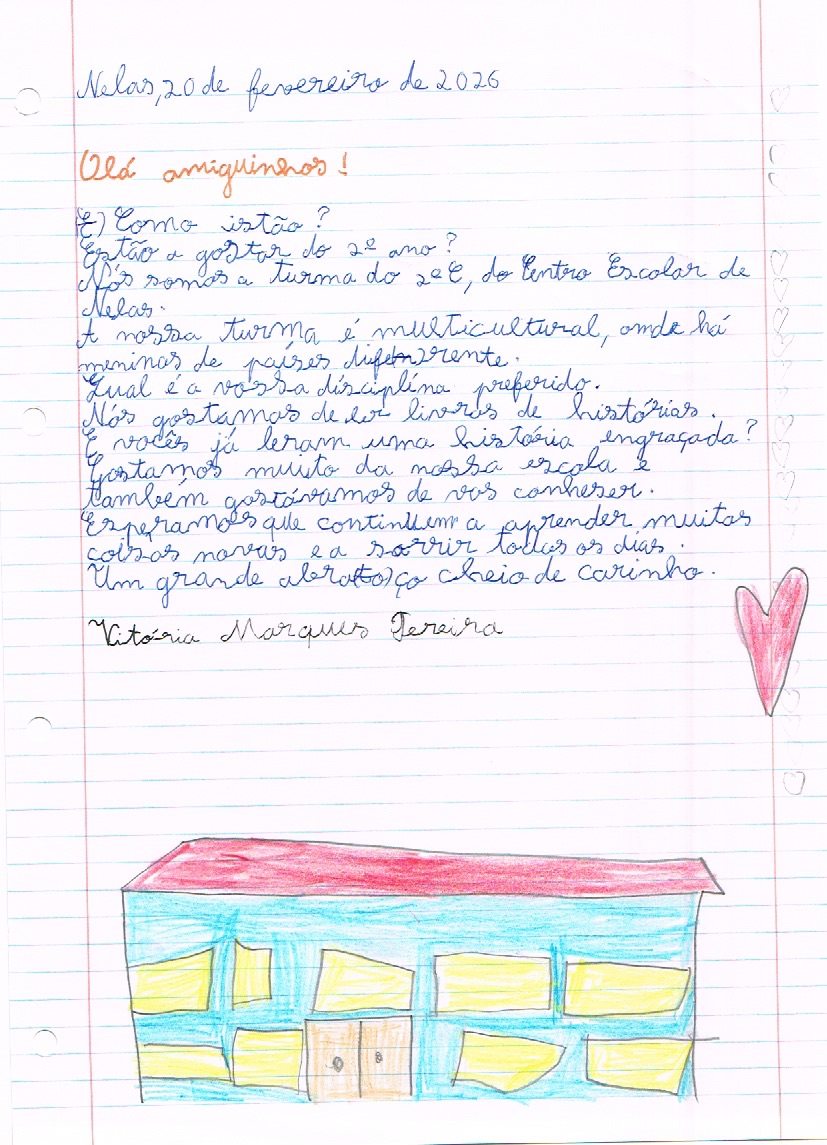 Nelas, 20 de fevereiro de 2026
Olá amiguinhos!
E) Como istão?
Estão a gostar do 2º ano?
Nós somos a turma do 2º E, do Centro Escolar de
Nelas.
A nossa turma é multicultural, onde há
meninas de países
Qual é a vossa disciplina preferido.
Nós gostamos de ler livros de histórias.
E vocês já leram uma história engraçada?
Gostamos muito da nossa escola e
também gostávamos de vos conheser.
Esperamos que continuem a aprender muitas
coisas novas e a sorrir todos os dias.
Um grande cheio de carinho.
Vitória Marques Pereira